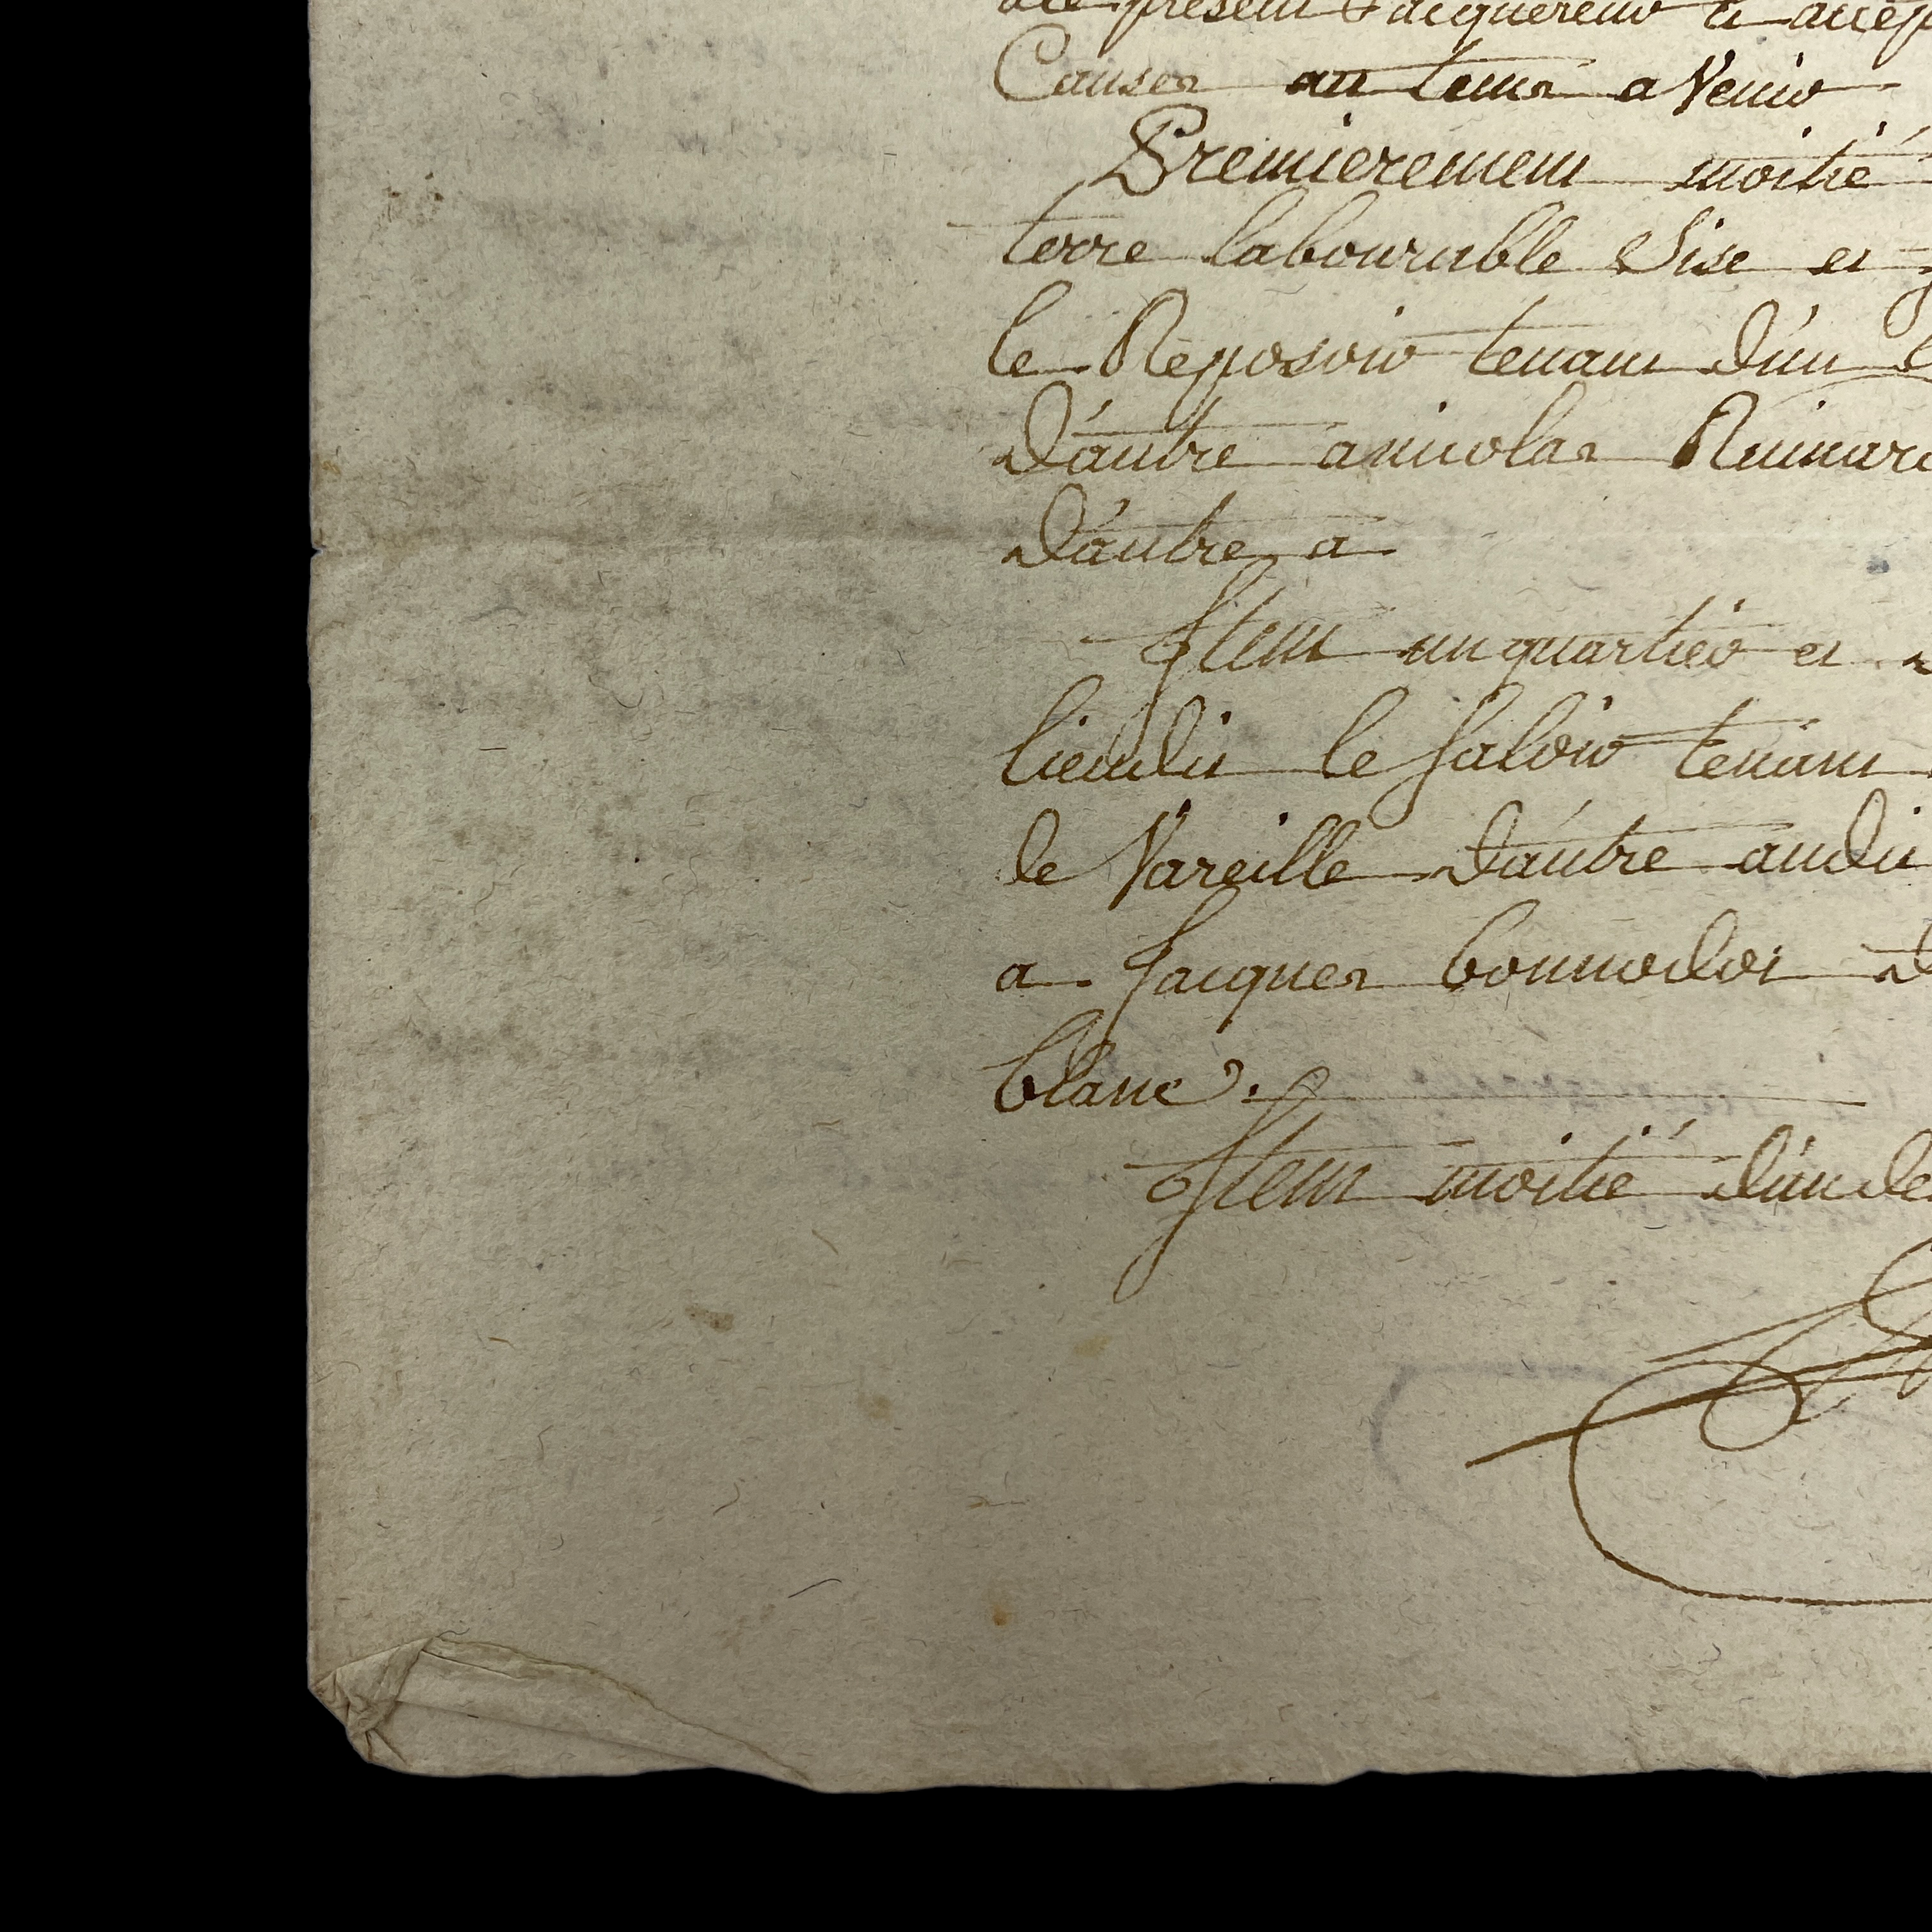 ace present & acquereur et accep
Causes au tems a Venir
Premierement moitié
terre labourable Sise et
le Reposoir tenant d'un
d'autre anicolas Ruinar
d'autre a
Item un quartier et
lieudit le saloir tenant
de Vareille d'autre audit
a Jacques bonnedot
blanc.
Item moitié d'un de